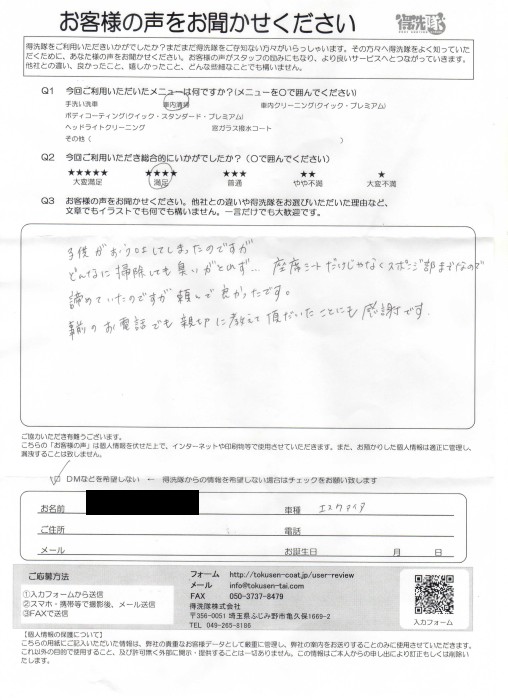 お客様の声をお聞かせください
得洗隊
得洗隊をご利用いただきいかがでしたか?まだまだ得洗隊をご存知ない方々がいらっしゃいます。その方々へ得洗隊をよく知っていただくために、あなた様の声をお聞かせください。お客様の声がスタッフの励みにもなり、より良いサービスへとつながっていきます。
他社との違い、良かったこと、嬉しかったこと、どんな些細なことでも構いません。
Q1 今回ご利用いただいたメニューは何ですか?(メニューを○で囲んでください)
手洗い洗車 車内清掃 車内クリーニング(クイック・プレミアム)
ボディコーティング(クイック・スタンダード・プレミアム)
ヘッドライトクリーニング 窓ガラス撥水コート
その他( )
Q2 今回ご利用いただき総合的にいかがでしたか?(○で囲んでください)
★★★★★ ★★★★ ★★★ ★★ ★
大変満足 満足 普通 やや不満 大変不満
Q3 お客様の声をお聞かせください。他社との違いや得洗隊をお選びいただいた理由など、
文章でもイラストでも何でも構いません。一言だけでも大歓迎です。
子供がおう吐してしまったのですが
どんなに掃除しても臭いがとれず… 座席シートだけじゃなくスポンジ部までなので
諦めていたのですが頼んで良かったです。
事前のお電話でも親切に教えて頂だいたことにも感謝です。
ご協力いただき有難うございます。
こちらの「お客様の声」は個人情報を伏せた上で、インターネットや印刷物等で使用させていただきます。また、お預かりした個人情報は適正に管理し、
漏洩することは致しません。
DMなどを希望しない ← 得洗隊からの情報を希望しない場合はチェックをお願い致します
お名前 車種 エスクァイア
ご住所 電話
メール お誕生日 月 日
ご応募方法
①入力フォームから送信
②スマホ・携帯等で撮影後、メール送信
③FAXで送信
フォーム http://tokusen-coat.jp/user-review
メール info@tokusen-tai.com
FAX 050-3737-8479
得洗隊株式会社
〒356-0051 埼玉県ふじみ野市亀久保1669-2
TEL 049-265-8186
入力フォーム
【個人情報の保護について】
こちらの用紙にご記入いただいた情報は、弊社の貴重なお客様データとして厳重に管理し、弊社の案内をお送りすることのみに使用させていただきます。
これ以外の目的で使用すること、及び許可無く外部に開示・提供することは一切ありません。この情報はご本人からの申し出により訂正もしくは削除いたします。